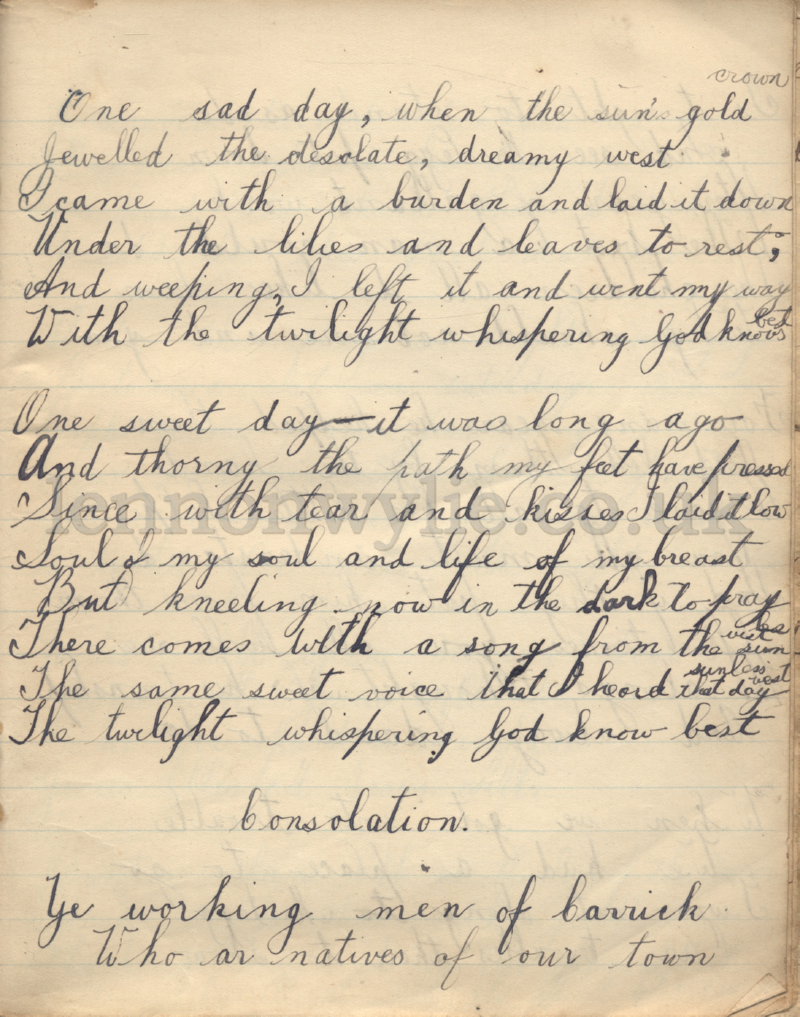 crown
One sad day, when the sun's gold
Jewelled the desolate, dreamy west
I came with a burden and laid it down
Under the lilies and leaves to rest;
And weeping, I left it and went my way
With the twilight whispering God knows best
One sweet day—it was long ago
And thorny the path my feet have pressed
Since with tear and kisses I laid it low
Soul of my soul and life of my breast
But kneeling now in the dark to pray
There comes with a song from the sun
sunless west
The same sweet voice that I heard that day
The twilight whispering God know best
Consolation.
Ye working men of Carrick
Who ar natives of our town
lennonwylie.co.uk